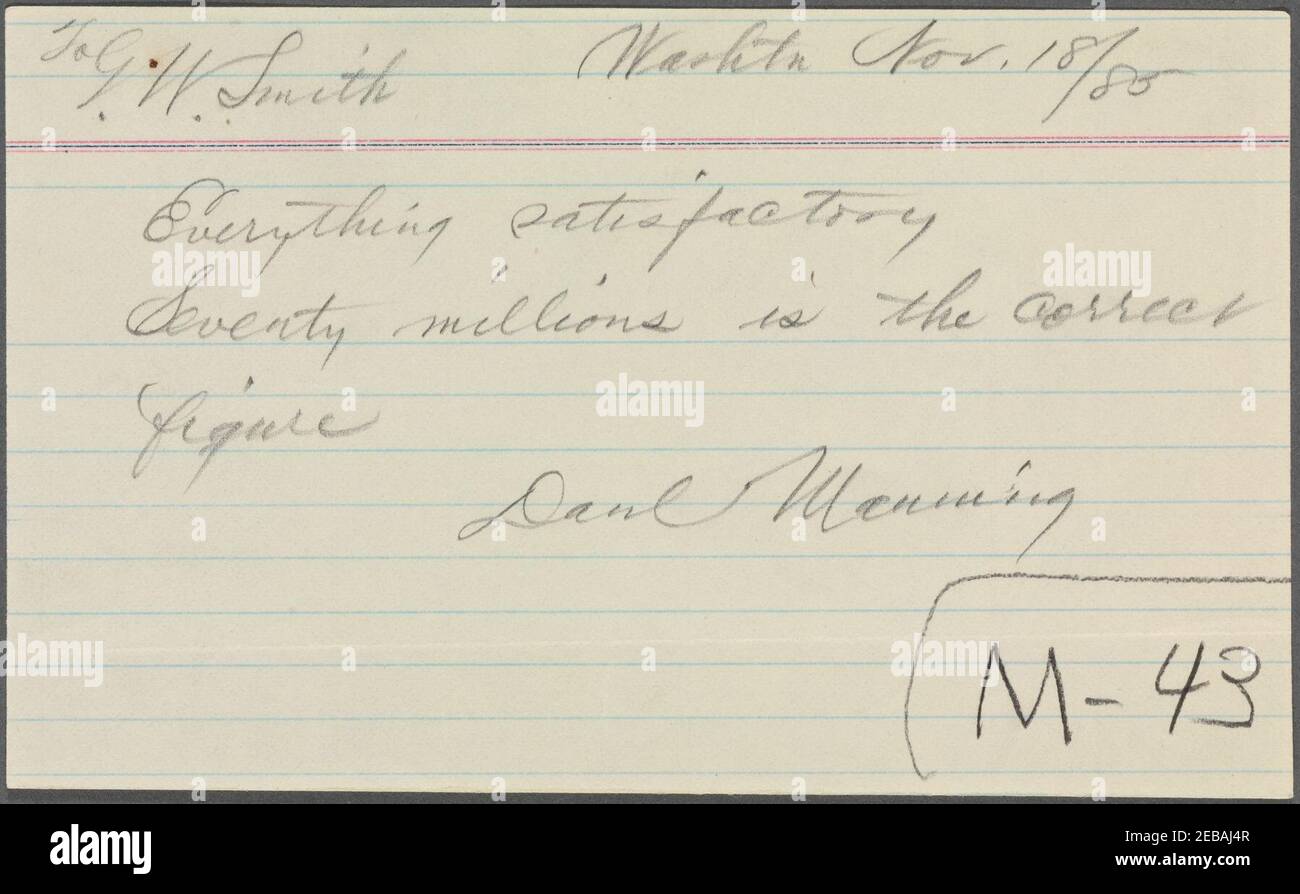 To G. W. Smith
Washtn Nov. 18/85
Everything satisfactory
Seventy millions is the correct
figure
Danl Manning
M-43
alamy
alamy
Image ID: 2EBAJ4R
www.alamy.com